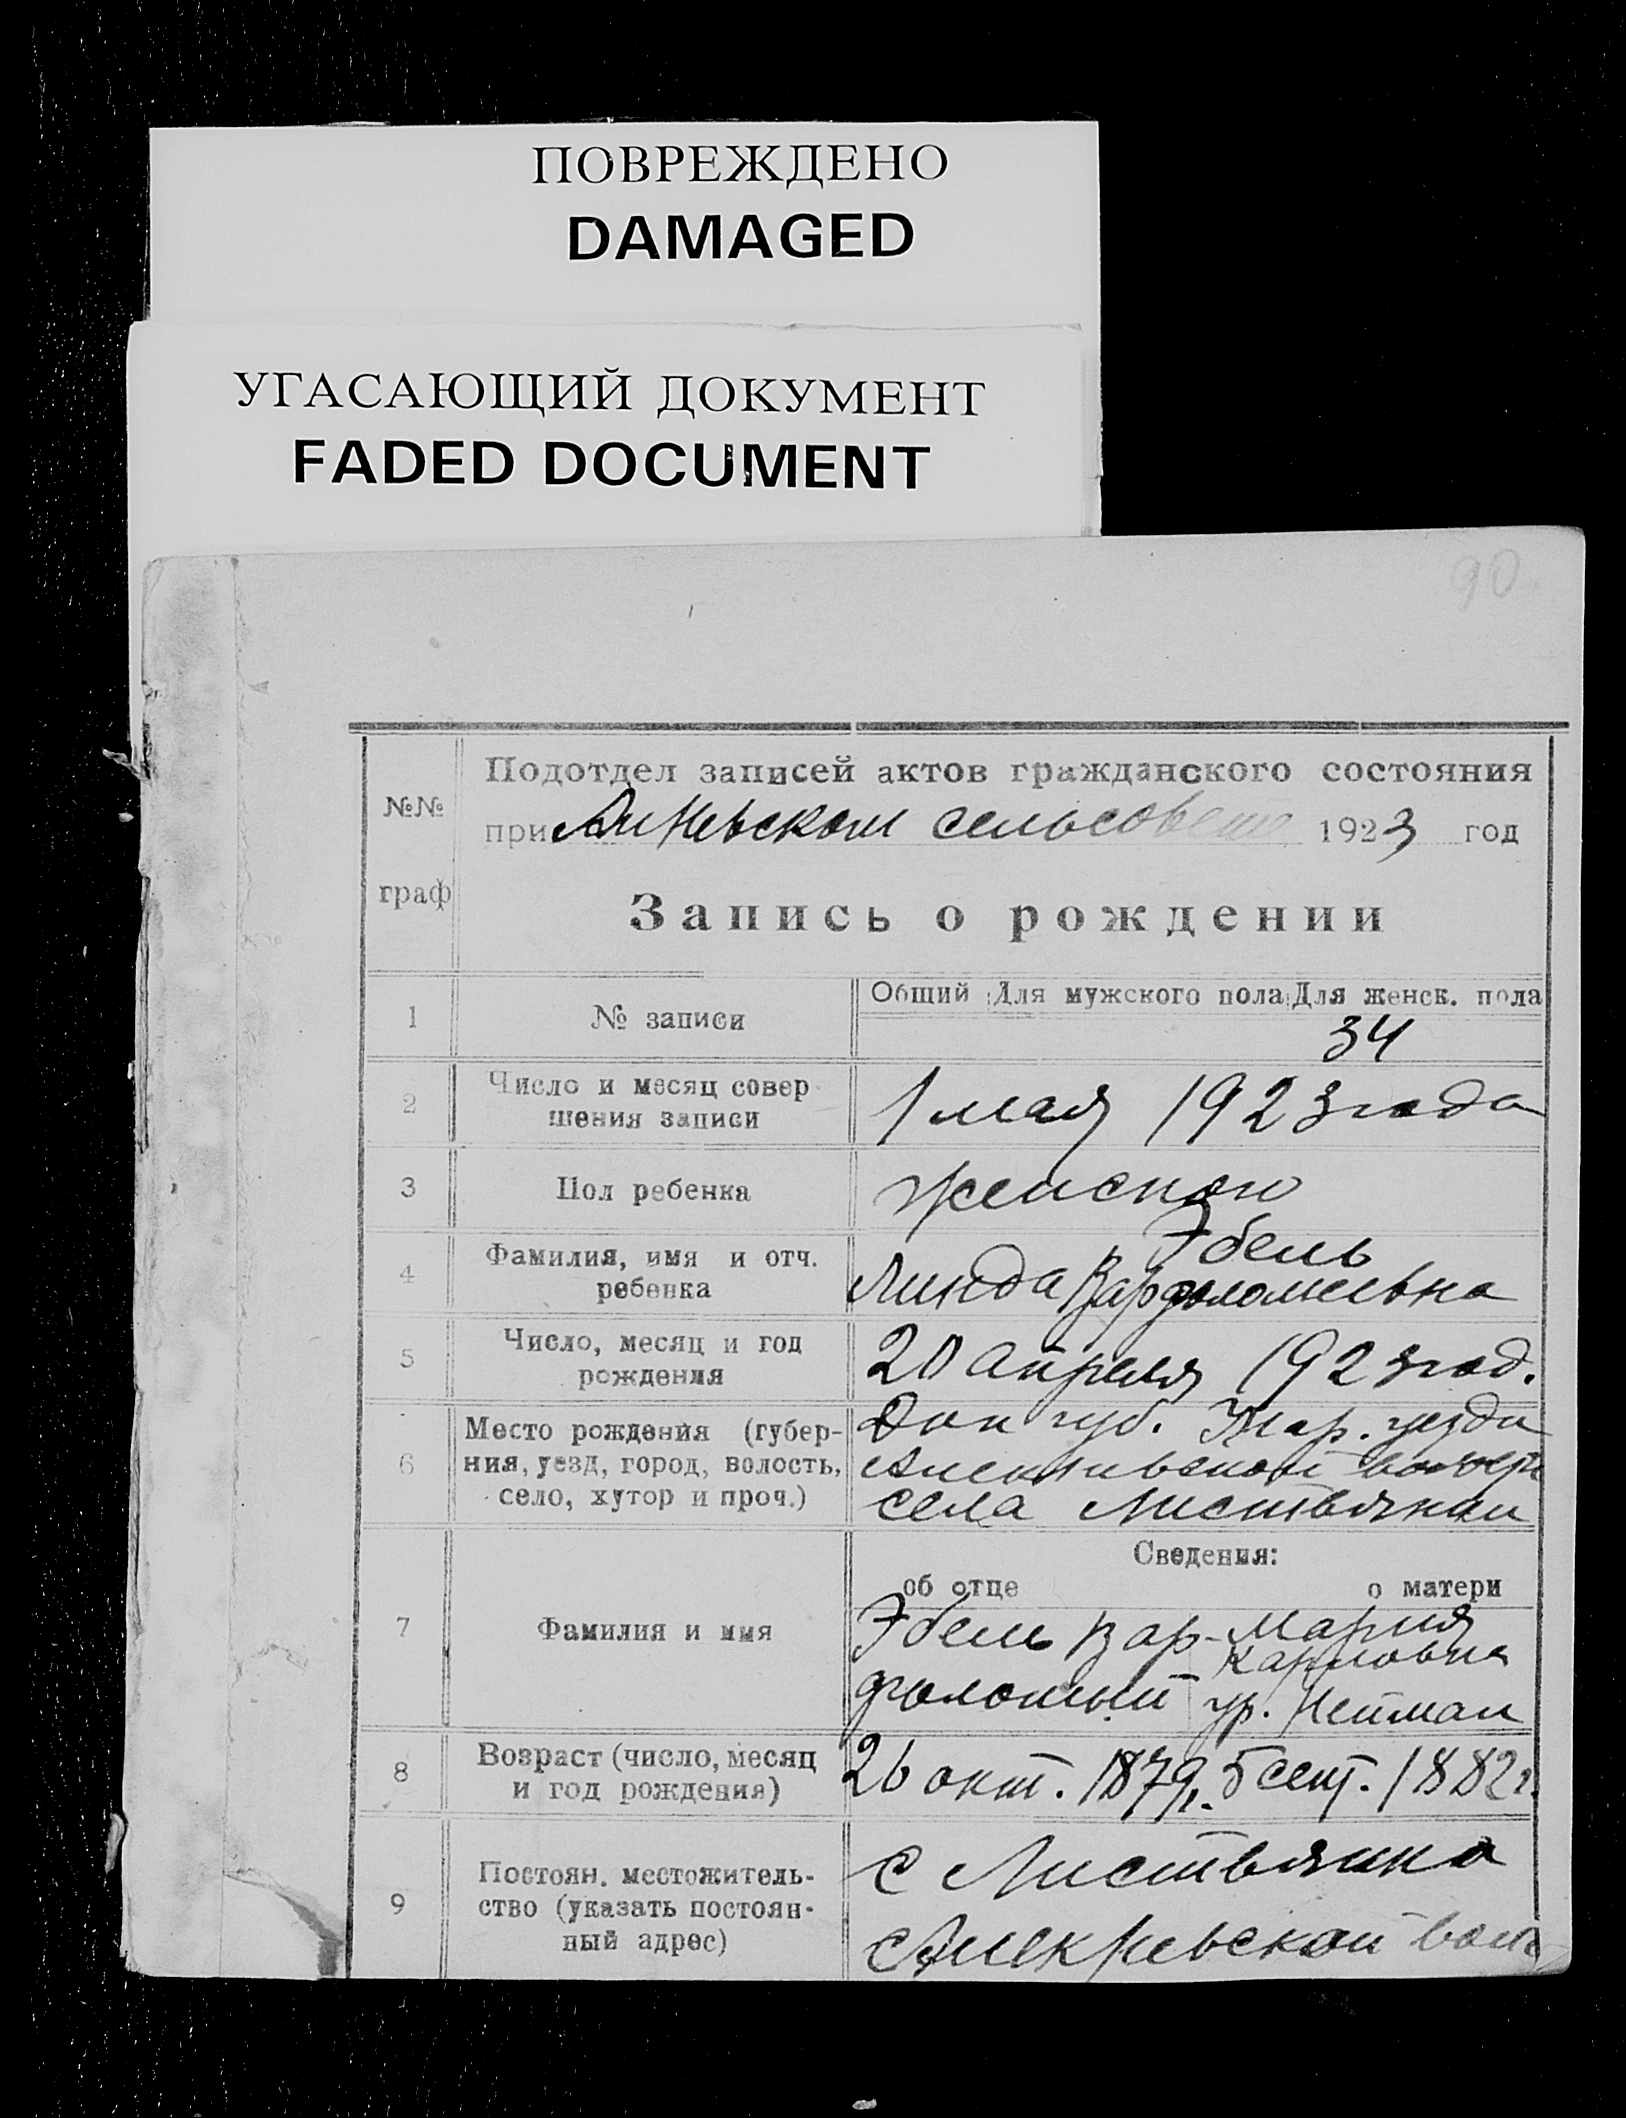 ПОВРЕЖДЕНО
DAMAGED
УГАСАЮЩИЙ ДОКУМЕНТ
FADED DOCUMENT
90
№№
граф
Подотдел записей актов гражданского состояния
при сельсовете 1923 год
Запись о рождении
1 № записи
Общий Для мужского пола Для женск. пола
34
2 Число и месяц совер
шения записи
1 мая 1923 года
3 Пол ребенка
женского
4 Фамилия, имя и отч.
ребенка
Эбель
Линда Варфоломеевна
5 Число, месяц и год
рождения
20 апреля 1923 год.
6 Место рождения (губер-
ния, уезд, город, волость,
село, хутор и проч.)
Дон губ. уезда
села Листвянки
Сведения:
об отце о матери
7 Фамилия и имя
Эбель Вар- Мария
Карловна
фоломей ур. Нейман
8 Возраст (число, месяц
и год рождения)
26 окт. 1879г. 5 сент. 1882г.
9 Постоян. местожитель-
ство (указать постоян-
ный адрес)
с Листвянка